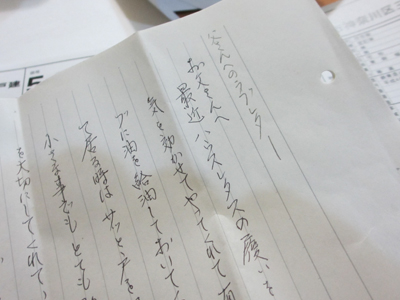 父さんへのラブレター
お父さんへ
最近ハウスレタスの覆いを
気を効かせてやってくれて有
プに油を給油しておいて
て居る時はサッと戸を
小さな事でもとても
を大切にしてくれてい